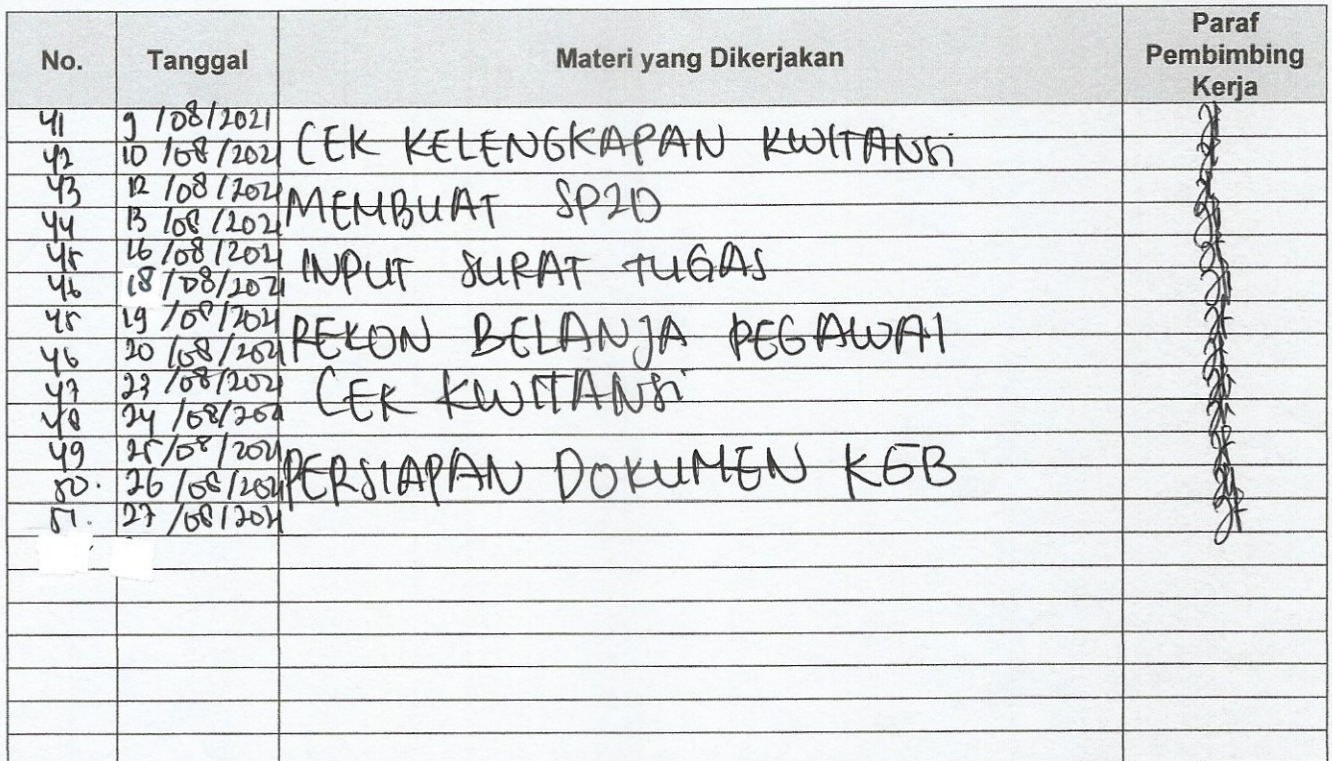 No. Tanggal Materi yang Dikerjakan Paraf Pembimbing Kerja
41 9/08/2021
CEK KELENGKAPAN KWITANSi
42 10/08/2021
43 12/08/2021
MEMBUAT SP2D
44 13/08/2021
45 16/08/2021
INPUT SURAT TUGAS
46 18/08/2021
45 19/08/2021
REKON BELANJA PEGAWAI
46 20/08/2021
47 23/08/2021
CEK KWITANSi
48 24/08/202
49 25/08/2021
PERSIAPAN DOKUMEN KGB
50. 26/08/2021
51. 27/08/2021